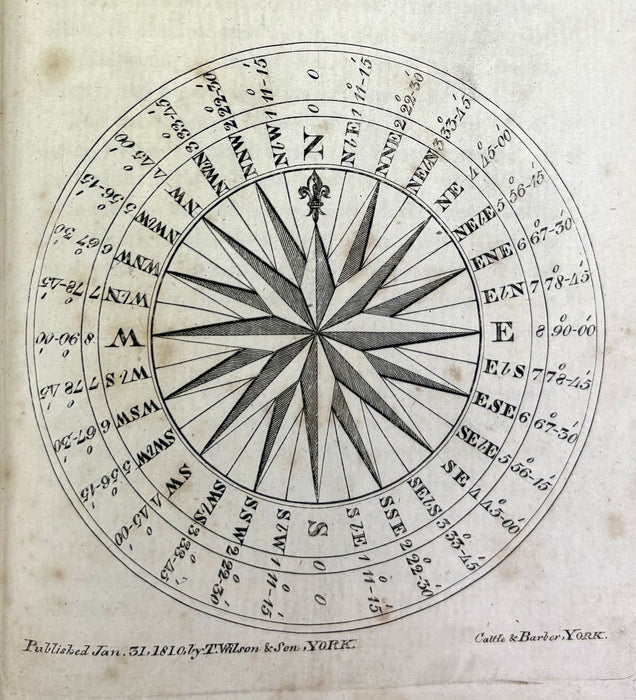 N 0 0
NbE 1 11°-15′
NNE 2 22°-30′
NEbN 3 33°-45′
NE 4 45°-00′
NEbE 5 56°-15′
ENE 6 67°-30′
EbN 7 78°-45′
E 8 90°-00′
EbS 7 78°-45′
ESE 6 67°-30′
SEbE 5 56°-15′
SE 4 45°-00′
SEbS 3 33°-45′
SSE 2 22°-30′
SbE 1 11°-15′
S 0 0
SbW 1 11°-15′
SSW 2 22°-30′
SWbS 3 33°-45′
SW 4 45°-00′
SWbW 5 56°-15′
WSW 6 67°-30′
WbS 7 78°-45′
W 8 90°-00′
WbN 7 78°-45′
WNW 6 67°-30′
NWbW 5 56°-15′
NW 4 45°-00′
NWbN 3 33°-45′
NNW 2 22°-30′
NbW 1 11°-15′
Published Jan. 31, 1810, by T. Wilson & Son, YORK.
Cattle & Barber, YORK.